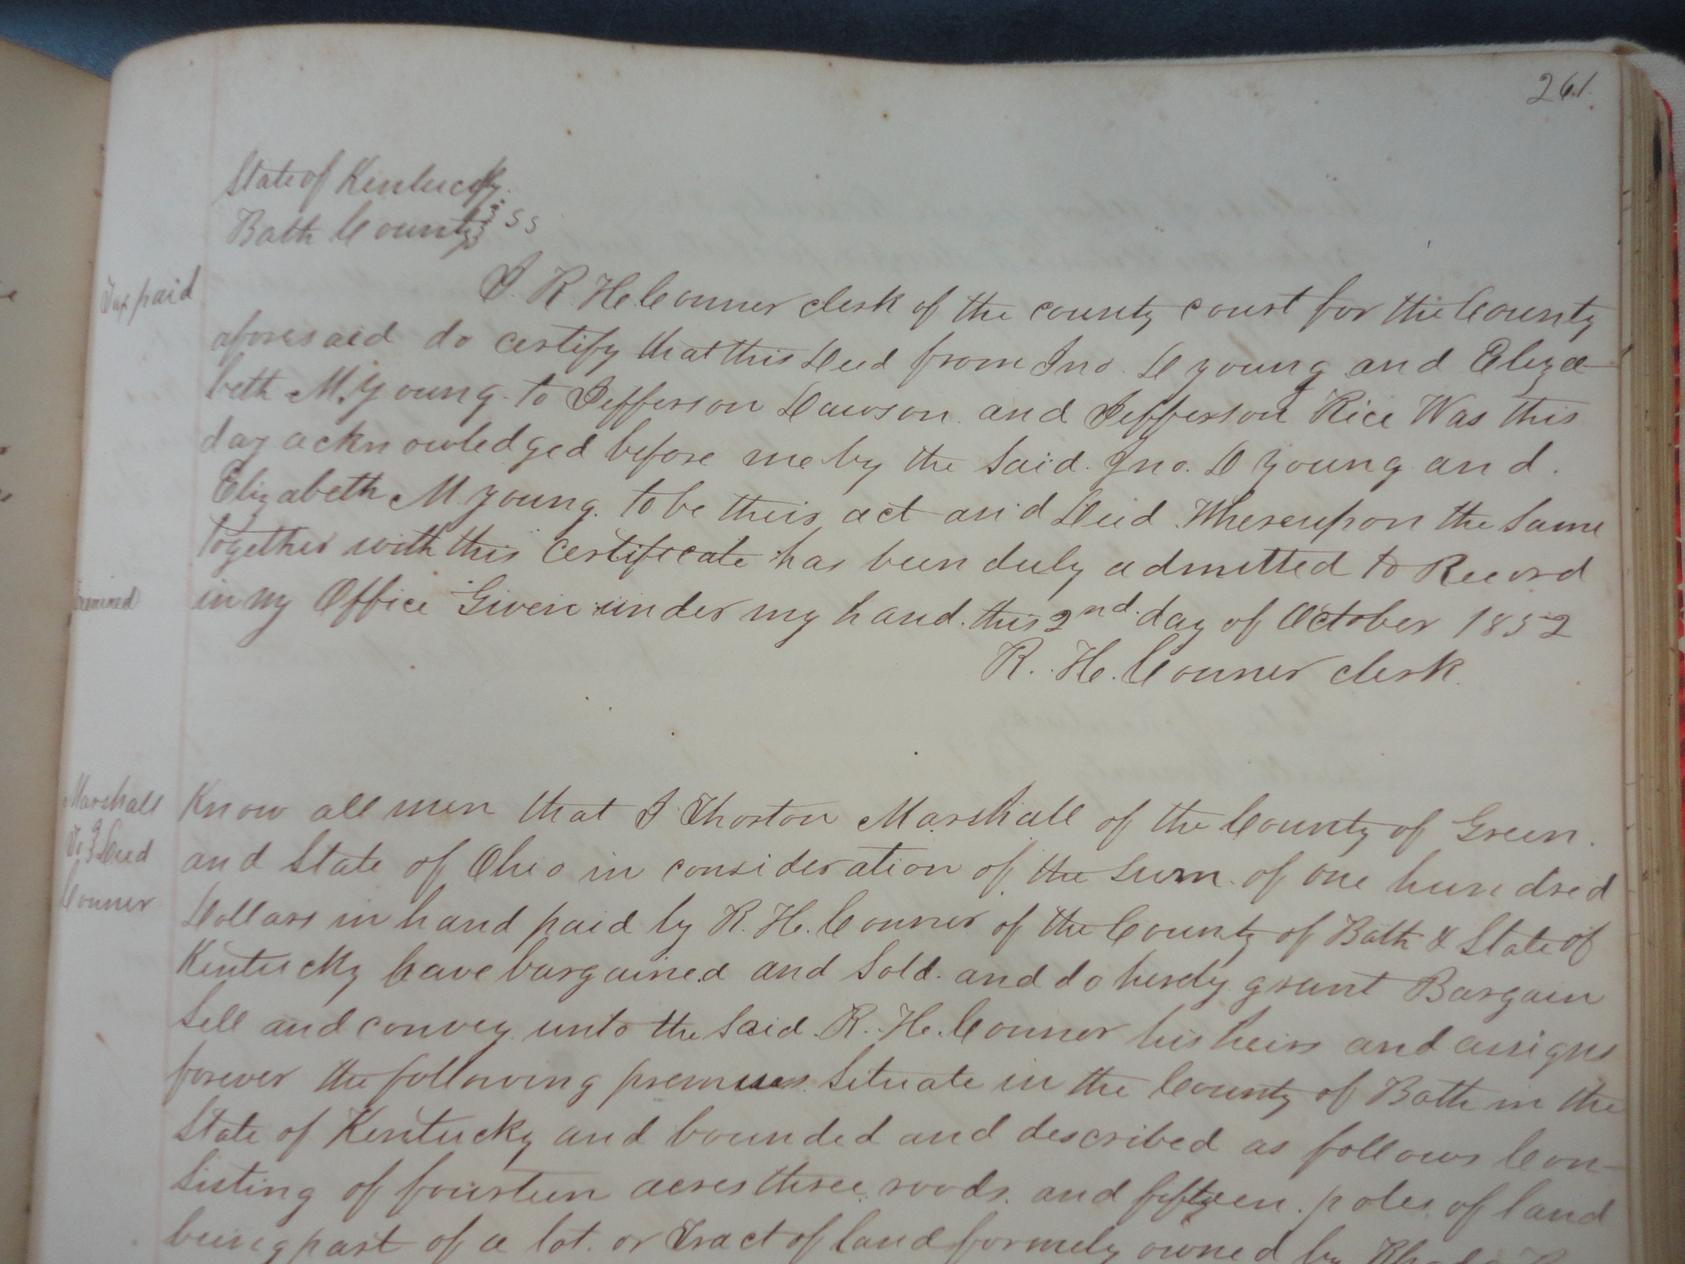 261.
State of Kentucky.
Bath County SS
Tax paid
I. R. H. Conner clerk of the county court for the County
aforesaid do certify that this Deed from Jno. D young and Eliza-
beth M. Young to Jefferson Dawson and Jefferson Rice Was this
day acknowledged before me by the Said Jno. D Young and.
Elizabeth M young to be their act and Deed Whereupon the Same
Together with this certificate has been duly admitted to Record
Examined
in my Office Given under my hand this 2nd day of October 1852
R. H. Conner clerk.
Marshall
To } Deed
Conner
Know all men that I Thorton Marshall of the County of Green
and State of Ohio in consideration of the Sum of one hundred
Dollars in hand paid by R. H. Conner of the County of Bath & State of
Kentucky have bargained and Sold and do hereby grant Bargain
Sell and convey unto the Said R. H. Conner his heirs and assigns
forever the following premises Situate in the County of Bath in the
State of Kentucky and bounded and described as follows Con-
Sisting of fourteen acres three roods and fifteen poles of land
being part of a lot or Tract of land formely owned by